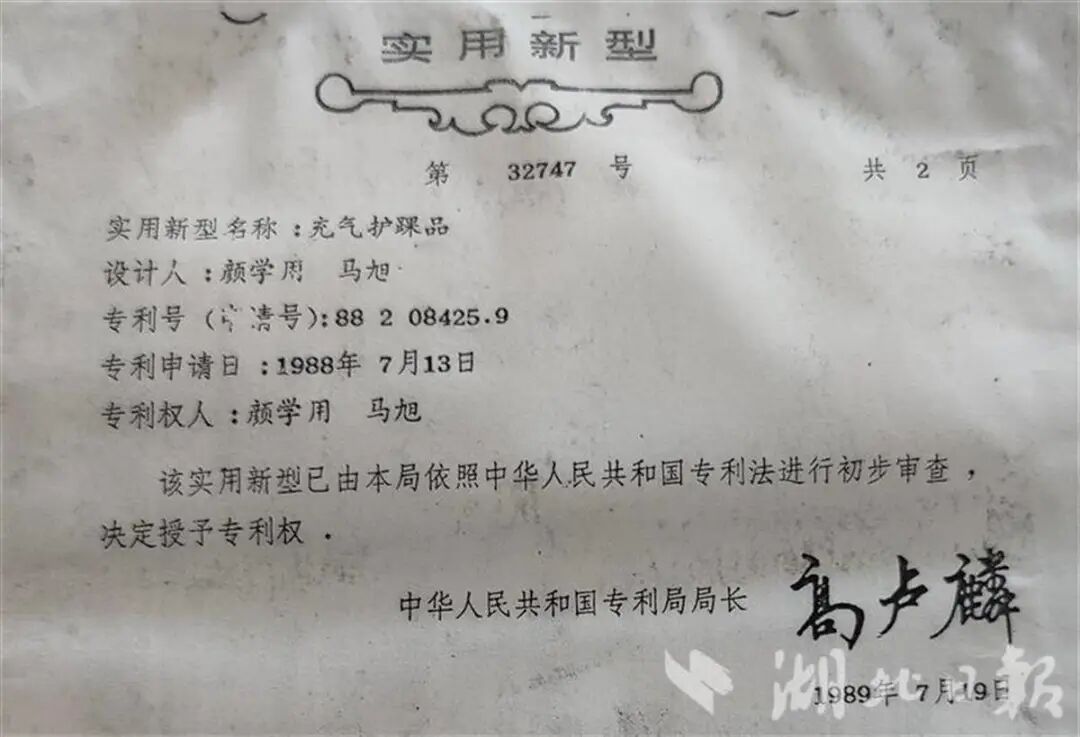 实用新型
第 32747 号 共 2 页
实用新型名称:充气护踝品
设计人:颜学用 马旭
专利号(申请号):88 2 08425.9
专利申请日:1988年 7月13日
专利权人:颜学用 马旭
该实用新型已由本局依照中华人民共和国专利法进行初步审查,
决定授予专利权.
中华人民共和国专利局局长 高卢麟
1989年 7月19日
湖北日报